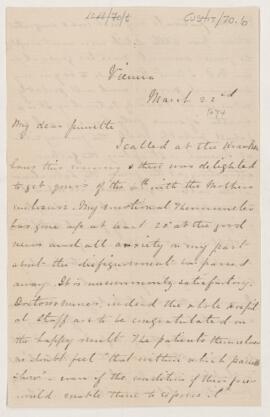 Vienna
March 22nd
1874
My dear Jeanette
I called at the
this morning & there was delighted
to get yours of the 4th with the Mothers
enclosure. My emotional Thermometer
has gone up at least 20° at the good
news and all anxiety on my part
about the disfigurement is passed
away. It is uncommonly satisfactory.
Doctors, nurses, indeed the whole
Staff are to be congratulated on
the happy result. The patients themselves
no doubt feel "that within which passeth
show" - even if the condition of their faces
would enable them to express it.